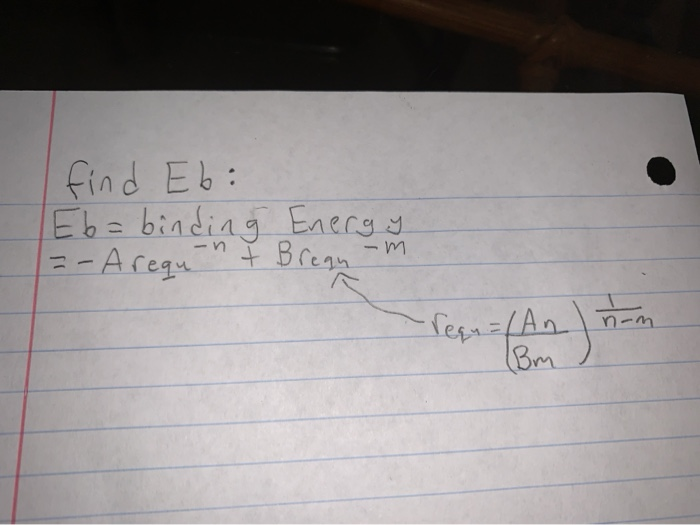 find Eb:
Eb = binding Energy
= - A requ^-n + B requ^-m
requ = (An/Bm)^(1/(n-m))